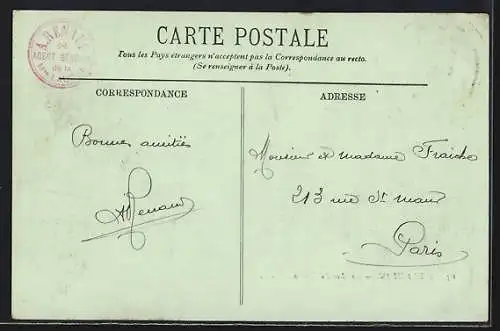 A. RENAUD
AGENT
CARTE POSTALE
Tous les Pays étrangers n'acceptent pas la Correspondance au recto.
(Se renseigner à la Poste).
CORRESPONDANCE
ADRESSE
Bonnes amitiés
ARenaud
Monsieur et madame Fraiche
213 rue St Maur
Paris